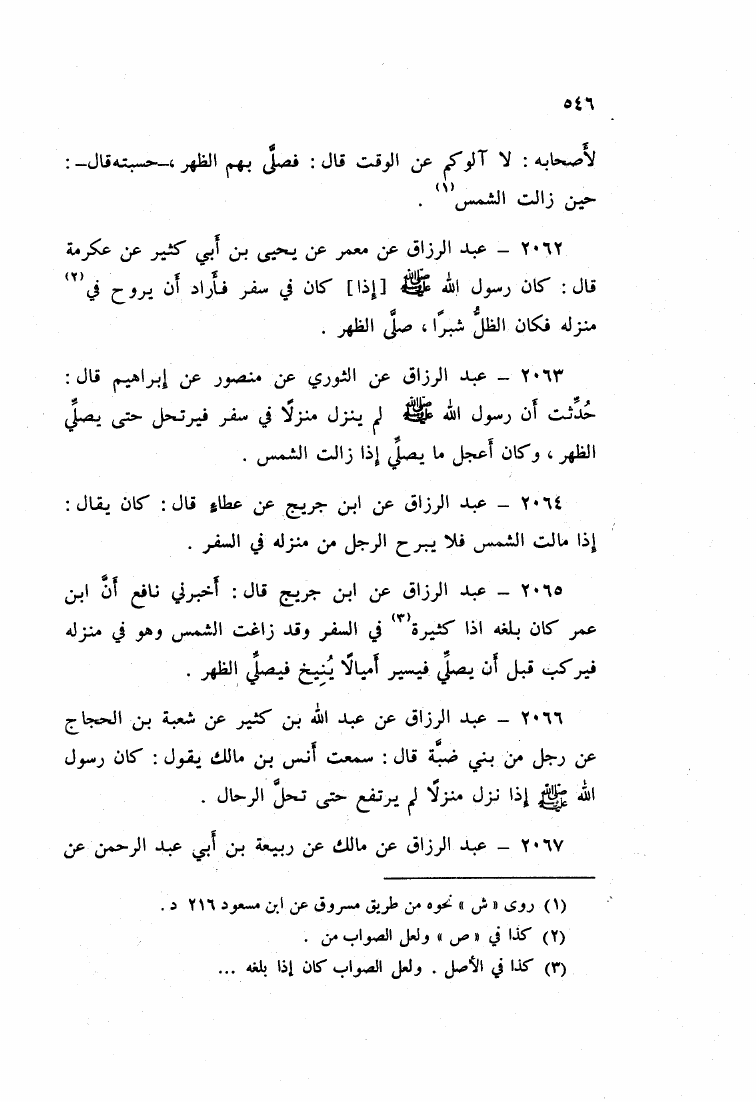 ٥٤٦
لأَصحابه : لا آلوكم عن الوقت قال : فصلَّى بهم الظهر ،ـحسبته قالـ :
حين زالت الشمس(١) .
٢٠٦٢ – عبد الرزاق عن معمر عن يحيى بن أَبي كثير عن عكرمة
قال : كان رسول الله ﷺ [إذا] كان في سفر فأَراد أَن يروح في(٢)
منزله فكان الظلُّ شبرًا ، صلَّى الظهر .
٢٠٦٣ – عبد الرزاق عن الثوري عن منصور عن إبراهيم قال :
حُدِّثت أَن رسول الله ﷺ لم ينزل منزلًا في سفر فيرتحل حتى يصلِّي
الظهر ، وكان أَعجل ما يصلِّي إذا زالت الشمس .
٢٠٦٤ – عبد الرزاق عن ابن جريج عن عطاءٍ قال : كان يقال :
إذا مالت الشمس فلا يبرح الرجل من منزله في السفر .
٢٠٦٥ – عبد الرزاق عن ابن جريج قال : أَخبرني نافع أَنَّ ابن
عمر كان بلغه اذا كثيرة(٣) في السفر وقد زاغت الشمس وهو في منزله
فيركب قبل أَن يصلِّي فيسير أَميالًا يُنِيخ فيصلِّي الظهر .
٢٠٦٦ – عبد الرزاق عن عبد الله بن كثير عن شعبة بن الحجاج
عن رجل من بني ضبَّة قال : سمعت أَنس بن مالك يقول : كان رسول
الله ﷺ إذا نزل منزلًا لم يرتفع حتى تحلَّ الرحال .
٢٠٦٧ – عبد الرزاق عن مالك عن ربيعة بن أَبي عبد الرحمن عن
(١) روى « ش » نحوه من طريق مسروق عن ابن مسعود ٢١٦ د .
(٢) كذا في « ص » ولعل الصواب من .
(٣) كذا في الأصل . ولعل الصواب كان إذا بلغه ...